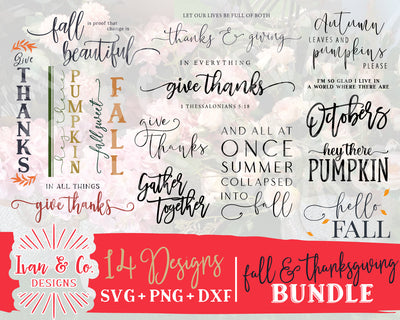 fall is proof that change is
beautiful
LET OUR LIVES BE FULL OF BOTH
thanks & giving
Autumn
LEAVES AND
pumpkins
PLEASE
give
THANKS
hey there
PUMPKIN
fall sweet
FALL
IN EVERYTHING
give thanks
1 THESSALONIANS 5:18
I'M SO GLAD I LIVE IN
A WORLD WHERE THERE ARE
Octobers
give
Thanks
AND ALL AT
ONCE
SUMMER
COLLAPSED
INTO fall
hey there
PUMPKIN
IN ALL THINGS
give thanks
Gather
Together
hello
FALL
Ivan & Co.
DESIGNS
14 Designs
SVG + PNG + DXF
fall & thanksgiving
BUNDLE